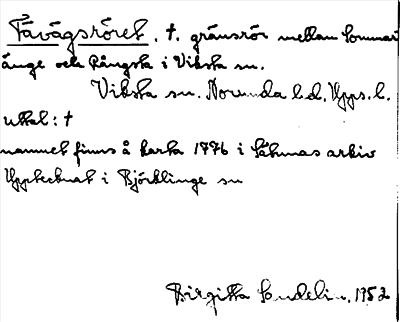 Tåvägsröret, †. gränsrör mellan Sommar-
änge och Rångsta i Viksta sn.
Viksta sn. Norunda hd, Upps. l.
uttal: †
namnet finns å karta 1776 i Säkmas arkiv
Upptecknat i Björklinge sn
Birgitta Sundelin, 1952